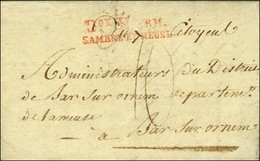 SAMBRE ET MEUSE
Citoyens
Administrateurs du District
de Bar sur ornem departem.t
de la meuse
à Bar sur ornem